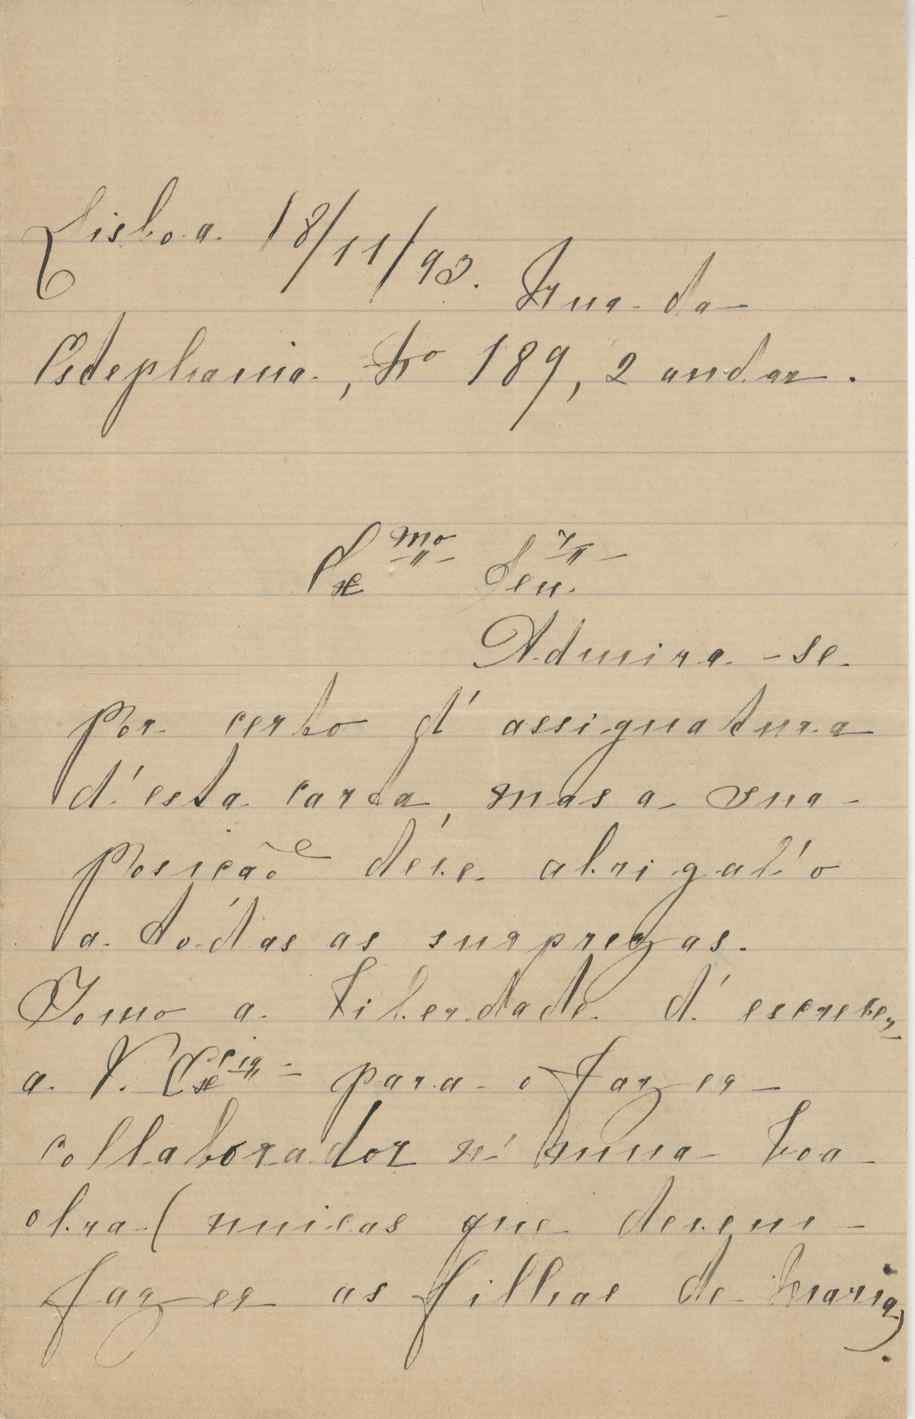 Lisboa 18/11/93. Rua da
Estephania, No 189, 2 andar.
Exmo Senr
Admira-se
por certo d'assignatura
d'esta carta, mas a sua
posição deve obrigal'o
a tôdas as surprezas.
Tomo a liberdade d'escrever
a V. Excia para o fazer
collaborador n'numa boa
obra (unicas que devem
fazer as filhas de Maria).